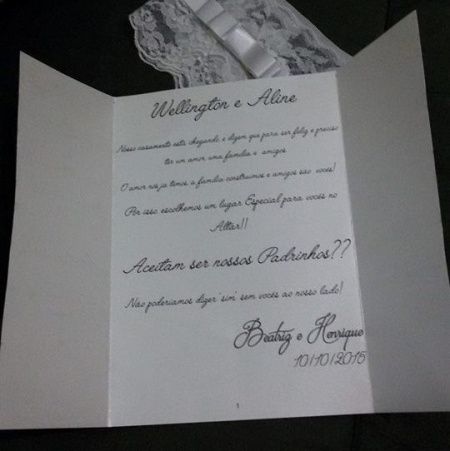 Wellington e Aline
Nosso casamento esta chegando, e dizem que para ser feliz e preciso
ter um amor uma familia e amigos.
O amor nos ja temos a familia construimos e amigos sao vocês!
Por isso escolhemos um lugar Especial para vocês no
Altar!!
Aceitam ser nossos Padrinhos??
Nao poderiamos dizer 'sim' sem vocês ao nosso lado!
Beatriz e Henrique
10/10/2015
1